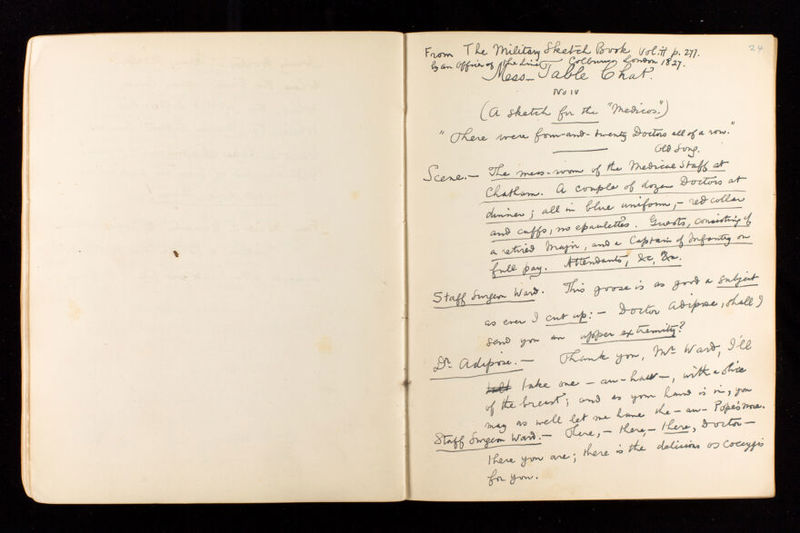 24
From The Military Sketch Book Vol. II p. 277.
by an Officer of the Line Colburn, London 1827.
Mess-Table Chat.
No IV
(A sketch for the "Medicos.")
"There were four-and-twenty Doctors all of a row."
Old Song.
Scene.— The mess-room of the Medical Staff at
Chatham. A couple of dozen Doctors at
dinner; all in blue uniform,— red collar
and cuffs, no epaulettes. Guests, consisting of
a retired Major, and a Captain of Infantry on
full pay. Attendants, &c, &c.
Staff Surgeon Ward. This goose is as good a subject
as ever I cut up:— Doctor Adipose, shall I
send you an upper extremity?
Dr. Adipose.— Thank you, Mr Ward, I'll
take one — aw-haw—, with a slice
of the breast; and as your hand is in, you
may as well let me have the — aw— Pope's nose.
Staff Surgeon Ward.— There,— there,— there, Doctor—
there you are; there is the delicious os coccygis
for you.